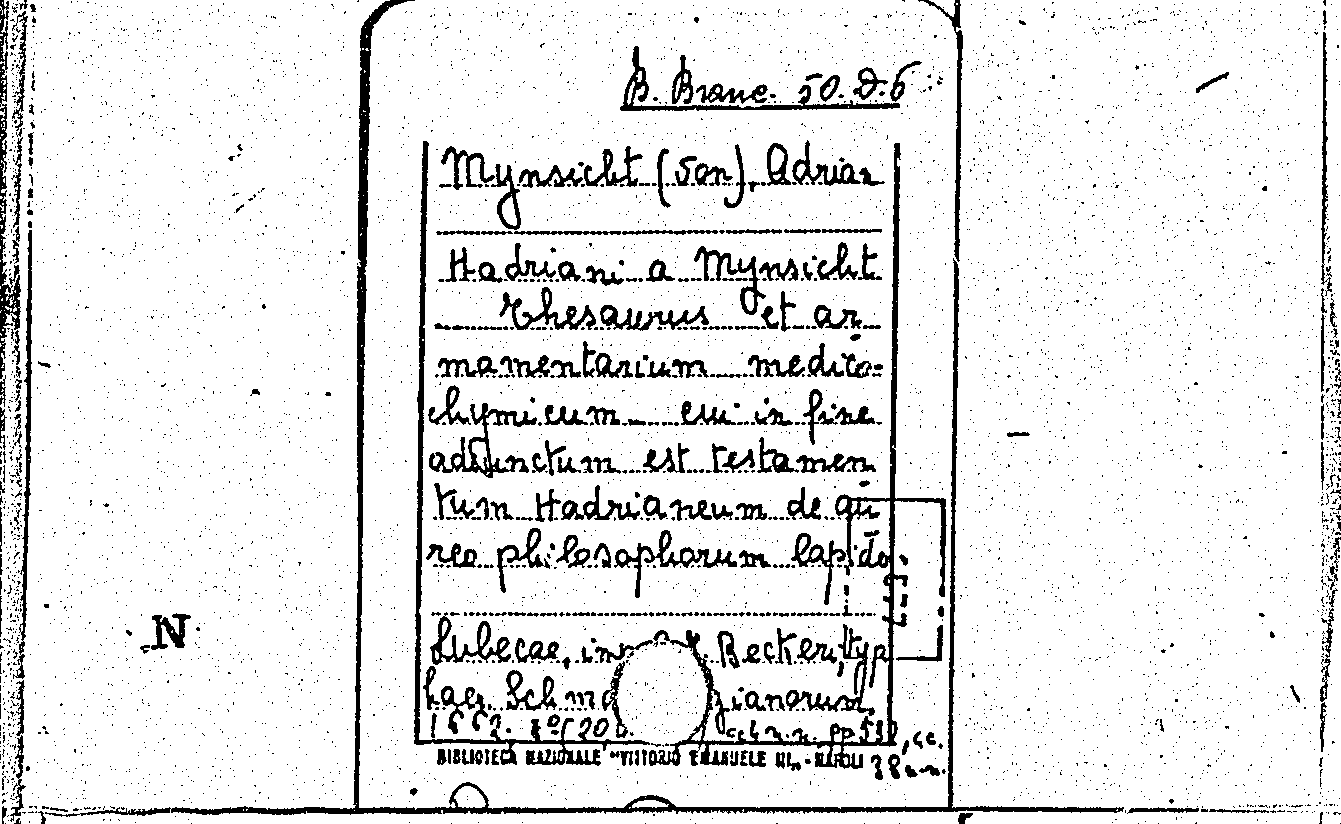 B. Branc. 50. D. 6
Mynsicht (von), Adrian
Hadriani a Mynsicht
Thesaurus et ar
mamentarium medico-
chymicum cui in fine
adjunctum est testamen
tum Hadrianeum de au
reo philosophorum lapide.
Lubecae, Beckeri, typ
haer. Schma gianorum,
1662. 8° (20 cc 4 n.n. pp 532, cc.
38 n.n.
BIBLIOTECA NAZIONALE "VITTORIO EMANUELE III" - NAPOLI
N